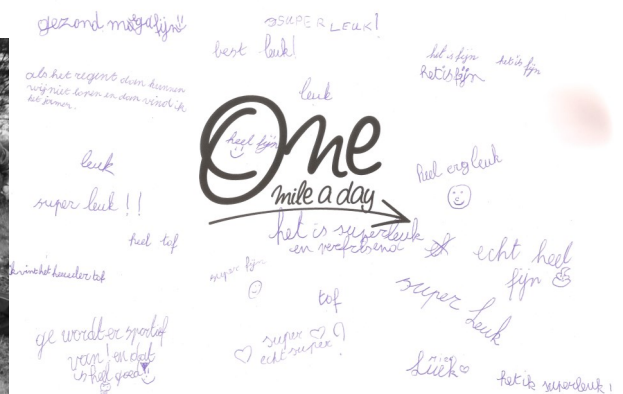 gezond megafijn
SUPER LEUK!
best leuk!
het is fijn
het is fijn
Het is fijn
als het regent dan kunnen
wij niet lopen en dan vind ik
het jammer.
leuk
One
heel fijn
mile a day
heel erg leuk
leuk
super leuk !!
heel tof
het is superleuk
en verfrisend
echt heel
fijn
super fijn
tof
super Leuk
ge wordt er sportief
van! en dat
is heel goed!!
super
echt super!
Leuk
het is superleuk!